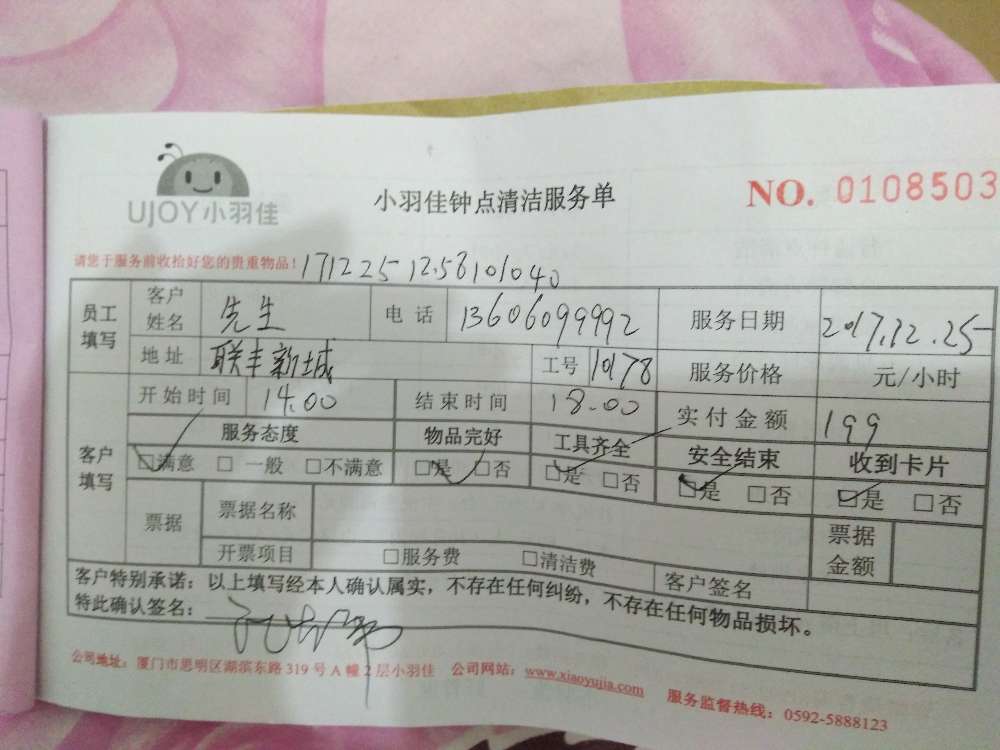 UJOY小羽佳
小羽佳钟点清洁服务单
NO. 0108503
请您于服务前收拾好您的贵重物品!
171225 1258101040
员工填写 客户姓名 先生 电话 13606099992 服务日期 2017.12.25
地址 联丰新城 工号 10178 服务价格 元/小时
客户填写 开始时间 14.00 结束时间 18.00 实付金额 199
服务态度 物品完好 工具齐全 安全结束 收到卡片
□满意 □一般 □不满意 □是 □否 □是 □否 □是 □否 □是 □否
票据 票据名称 票据金额
开票项目 □服务费 □清洁费 客户签名
客户特别承诺:以上填写经本人确认属实,不存在任何纠纷,不存在任何物品损坏。
特此确认签名:
公司地址:厦门市思明区湖滨东路319号A幢2层小羽佳 公司网站:www.xiaoyujia.com 服务监督热线:0592-5888123